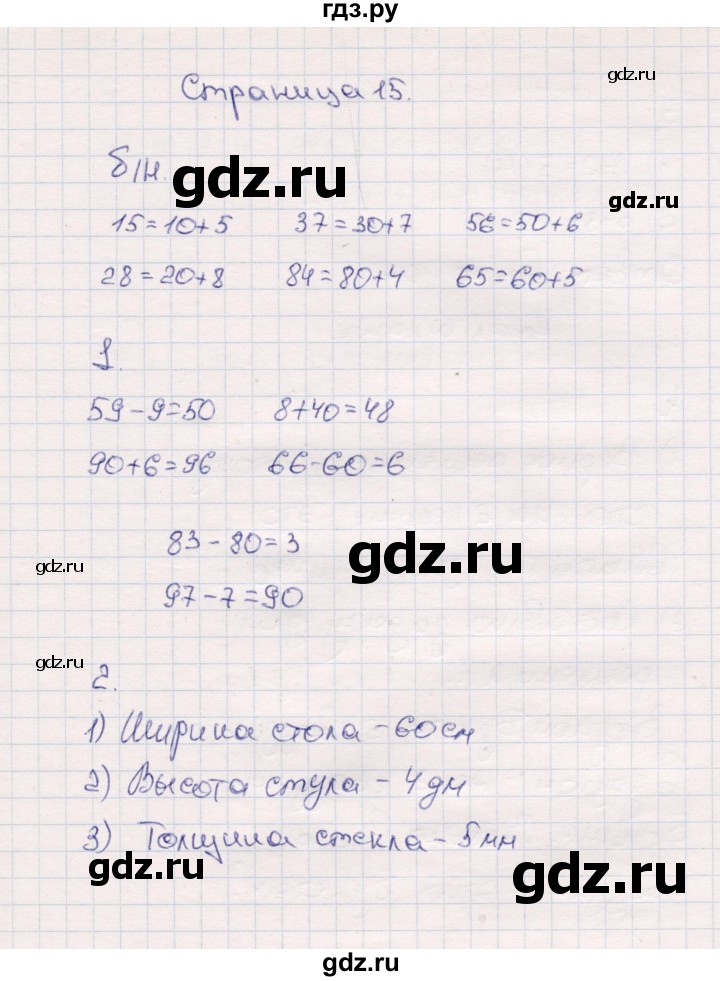 гдз.ру
gdz.ru
Страница 15.
б/н. gdz.ru
gdz.ru
15=10+5 37=30+7 56=50+6
28=20+8 84=80+4 65=60+5
1.
59-9=50 8+40=48
90+6=96 66-60=6
83-80=3
gdz.ru
gdz.ru
97-7=90
gdz.ru
2.
1) Ширина стола - 60 см
2) Высота стула - 4 дм
3) Толщина стекла - 5 мм
gdz.ru
gdz.ru
gdz.ru
gdz.ru